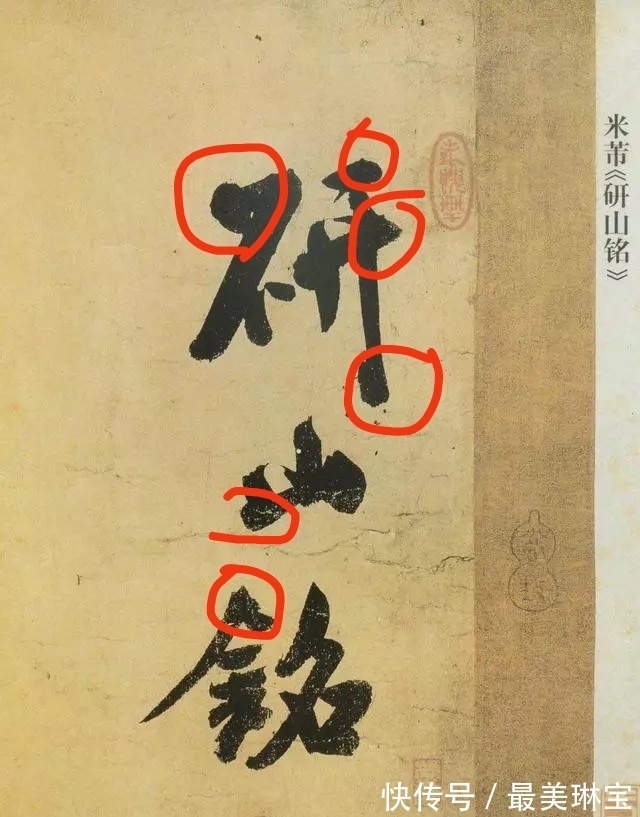 研山銘
米芾《研山铭》
快传号／最美琳宝